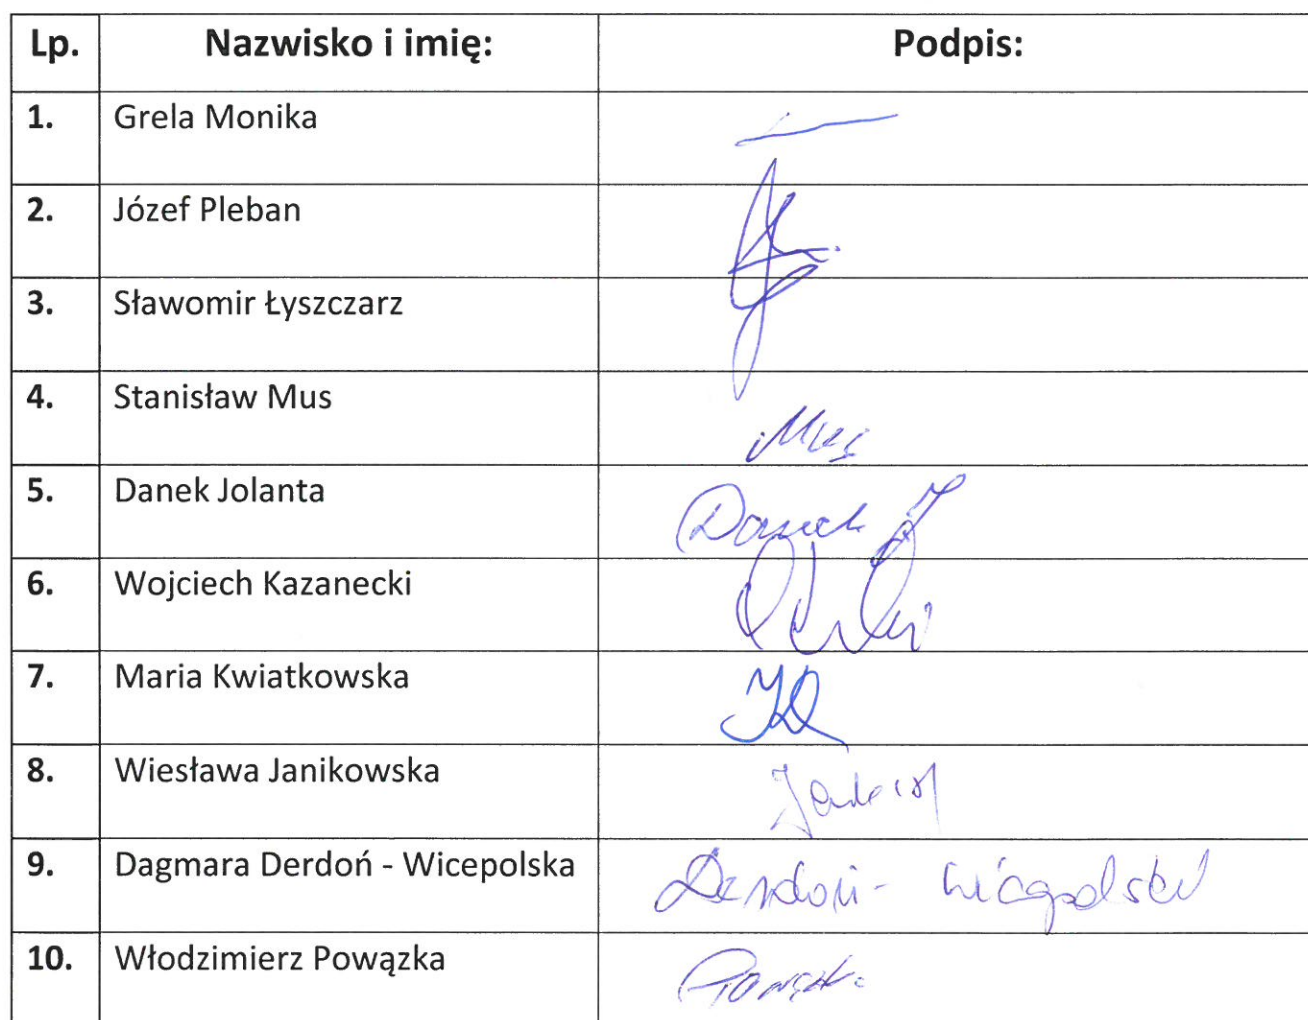 Lp. Nazwisko i imię: Podpis:
1. Grela Monika
2. Józef Pleban
3. Sławomir Łyszczarz
4. Stanisław Mus Mus
5. Danek Jolanta Danek J
6. Wojciech Kazanecki
7. Maria Kwiatkowska
8. Wiesława Janikowska
9. Dagmara Derdoń - Wicepolska Derdoń-
10. Włodzimierz Powązka